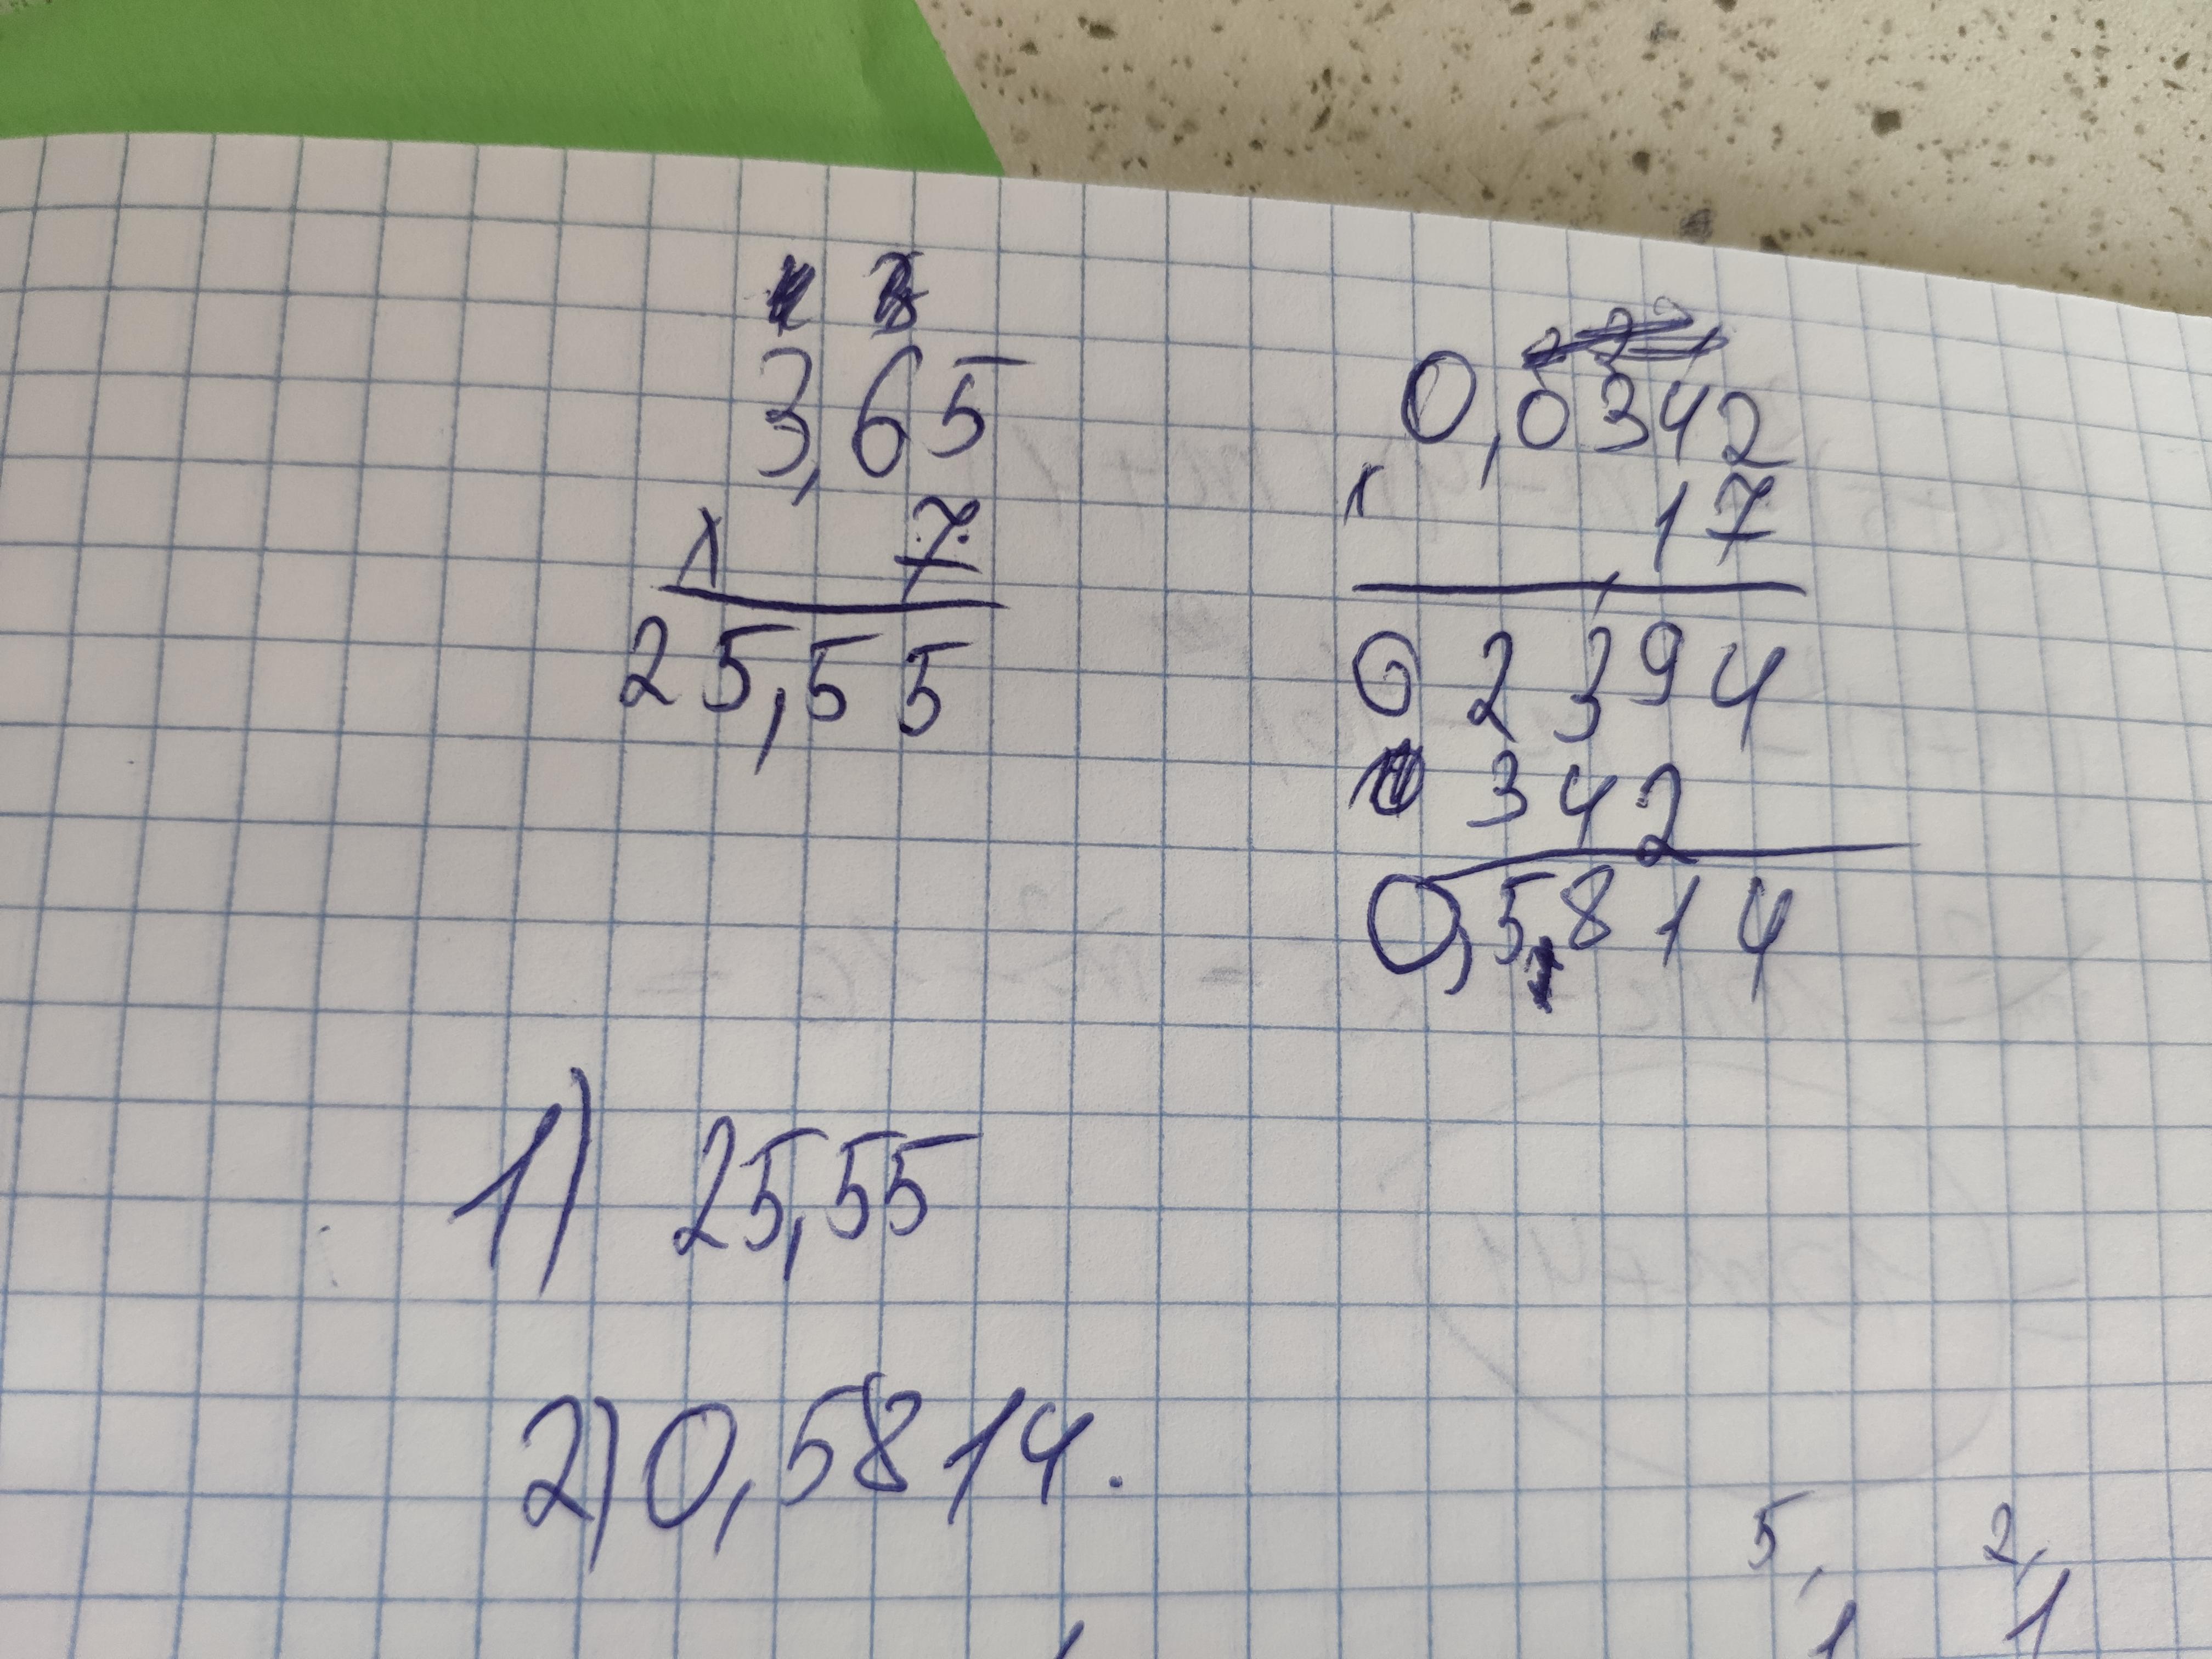 3,65
x 7
25,55
0,0342
x 17
02394
342
0,5814
1) 25,55
2) 0,5814.
5, 2,
1 1